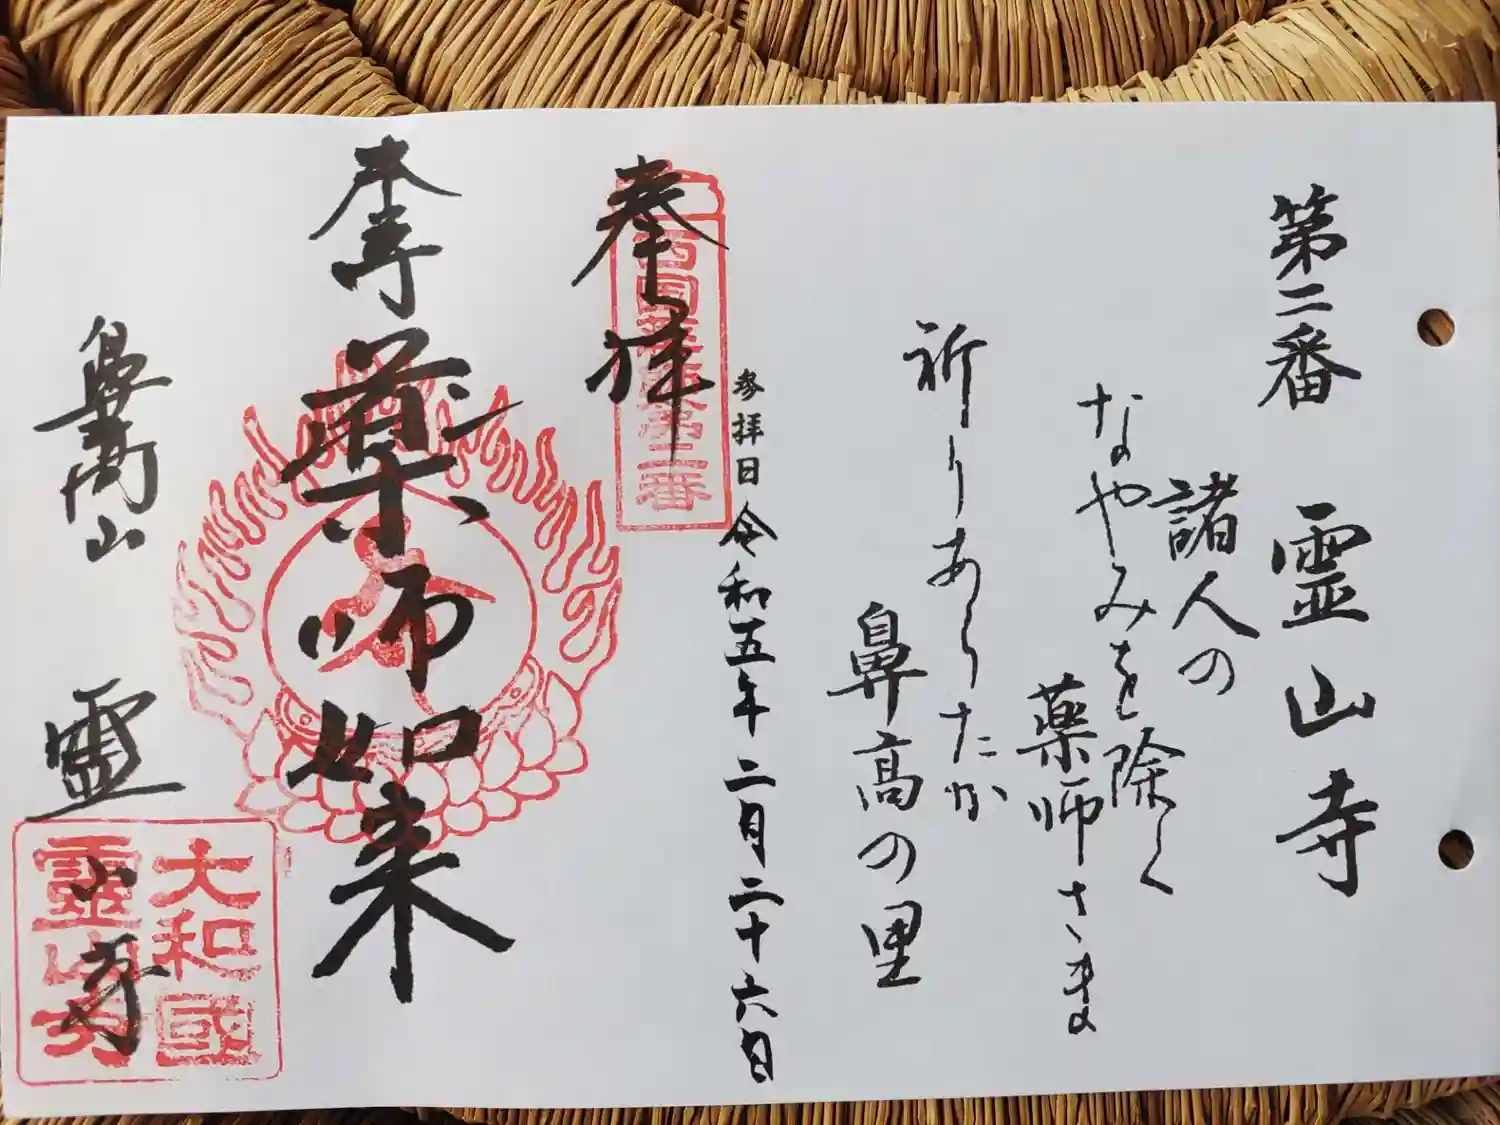 第二番 霊山寺
諸人の
なやみを除く
薬師さま
祈りあらたか
鼻高の里
参拝日 令和五年 二月二十六日
奉拝
西国薬師第二番
本尊
薬師如来
鼻高山
霊山寺
大和國
霊山寺